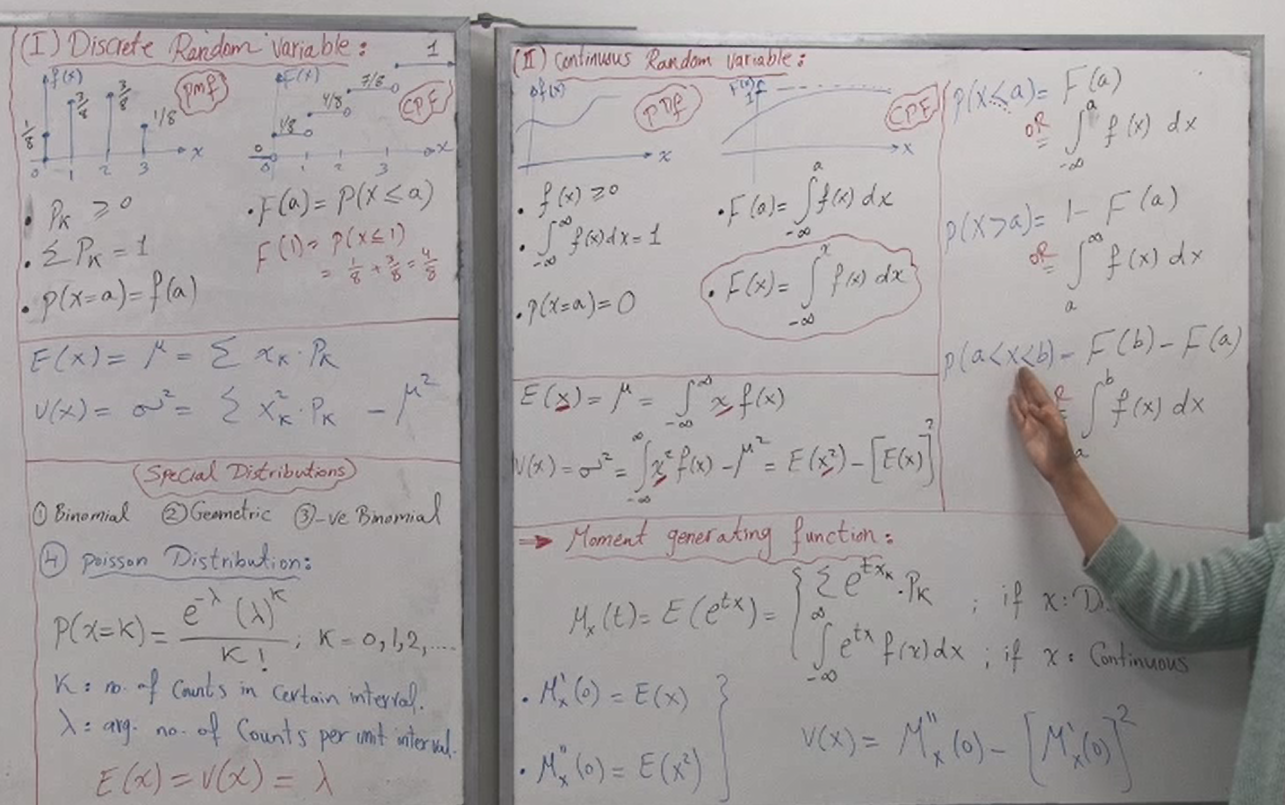 (I) Discrete Random Variable:
f(x)
pmf
1/8
3/8
3/8
1/8
0 1 2 3 x
F(x)
CPF
0
1/8
4/8
7/8
1
0 1 2 3 x
• P_K ≥ 0
• Σ P_K = 1
• p(x=a) = f(a)
• F(a) = P(X ≤ a)
F(1) = P(x ≤ 1)
= 1/8 + 3/8 = 4/8
E(x) = μ = Σ x_K · P_K
V(x) = σ² = Σ x²_K · P_K − μ²
(Special Distributions)
① Binomial ② Geometric ③ -ve Binomial
④ poisson Distribution:
P(x=K) = e^-λ (λ)^K / K! ; K = 0,1,2,....
K: no. of Counts in Certain interval.
λ: avg. no. of Counts per unit interval.
E(x) = V(x) = λ
(II) Continuous Random Variable:
f(x)
PDF
x
F(x)
1
CPF
x
• f(x) ≥ 0
• ∫_-∞^∞ f(x) dx = 1
• p(x=a) = 0
• F(a) = ∫_-∞^a f(x) dx
• F(x) = ∫_-∞^x f(x) dx
E(x) = μ = ∫_-∞^∞ x f(x)
V(x) = σ² = ∫_-∞^∞ x² f(x) − μ² = E(x²) − [E(x)]²
p(x ≤ a) = F(a)
OR = ∫_-∞^a f(x) dx
p(x > a) = 1 − F(a)
OR = ∫_a^∞ f(x) dx
p(a < x < b) = F(b) − F(a)
= ∫_a^b f(x) dx
⇒ Moment generating function:
M_x(t) = E(e^tx) = { Σ e^tx_K · P_K ; if x: D
∫_-∞^∞ e^tx f(x) dx ; if x: Continuous
• M'_x(0) = E(x)
• M''_x(0) = E(x²) }
V(x) = M''_x(0) − [M'_x(0)]²